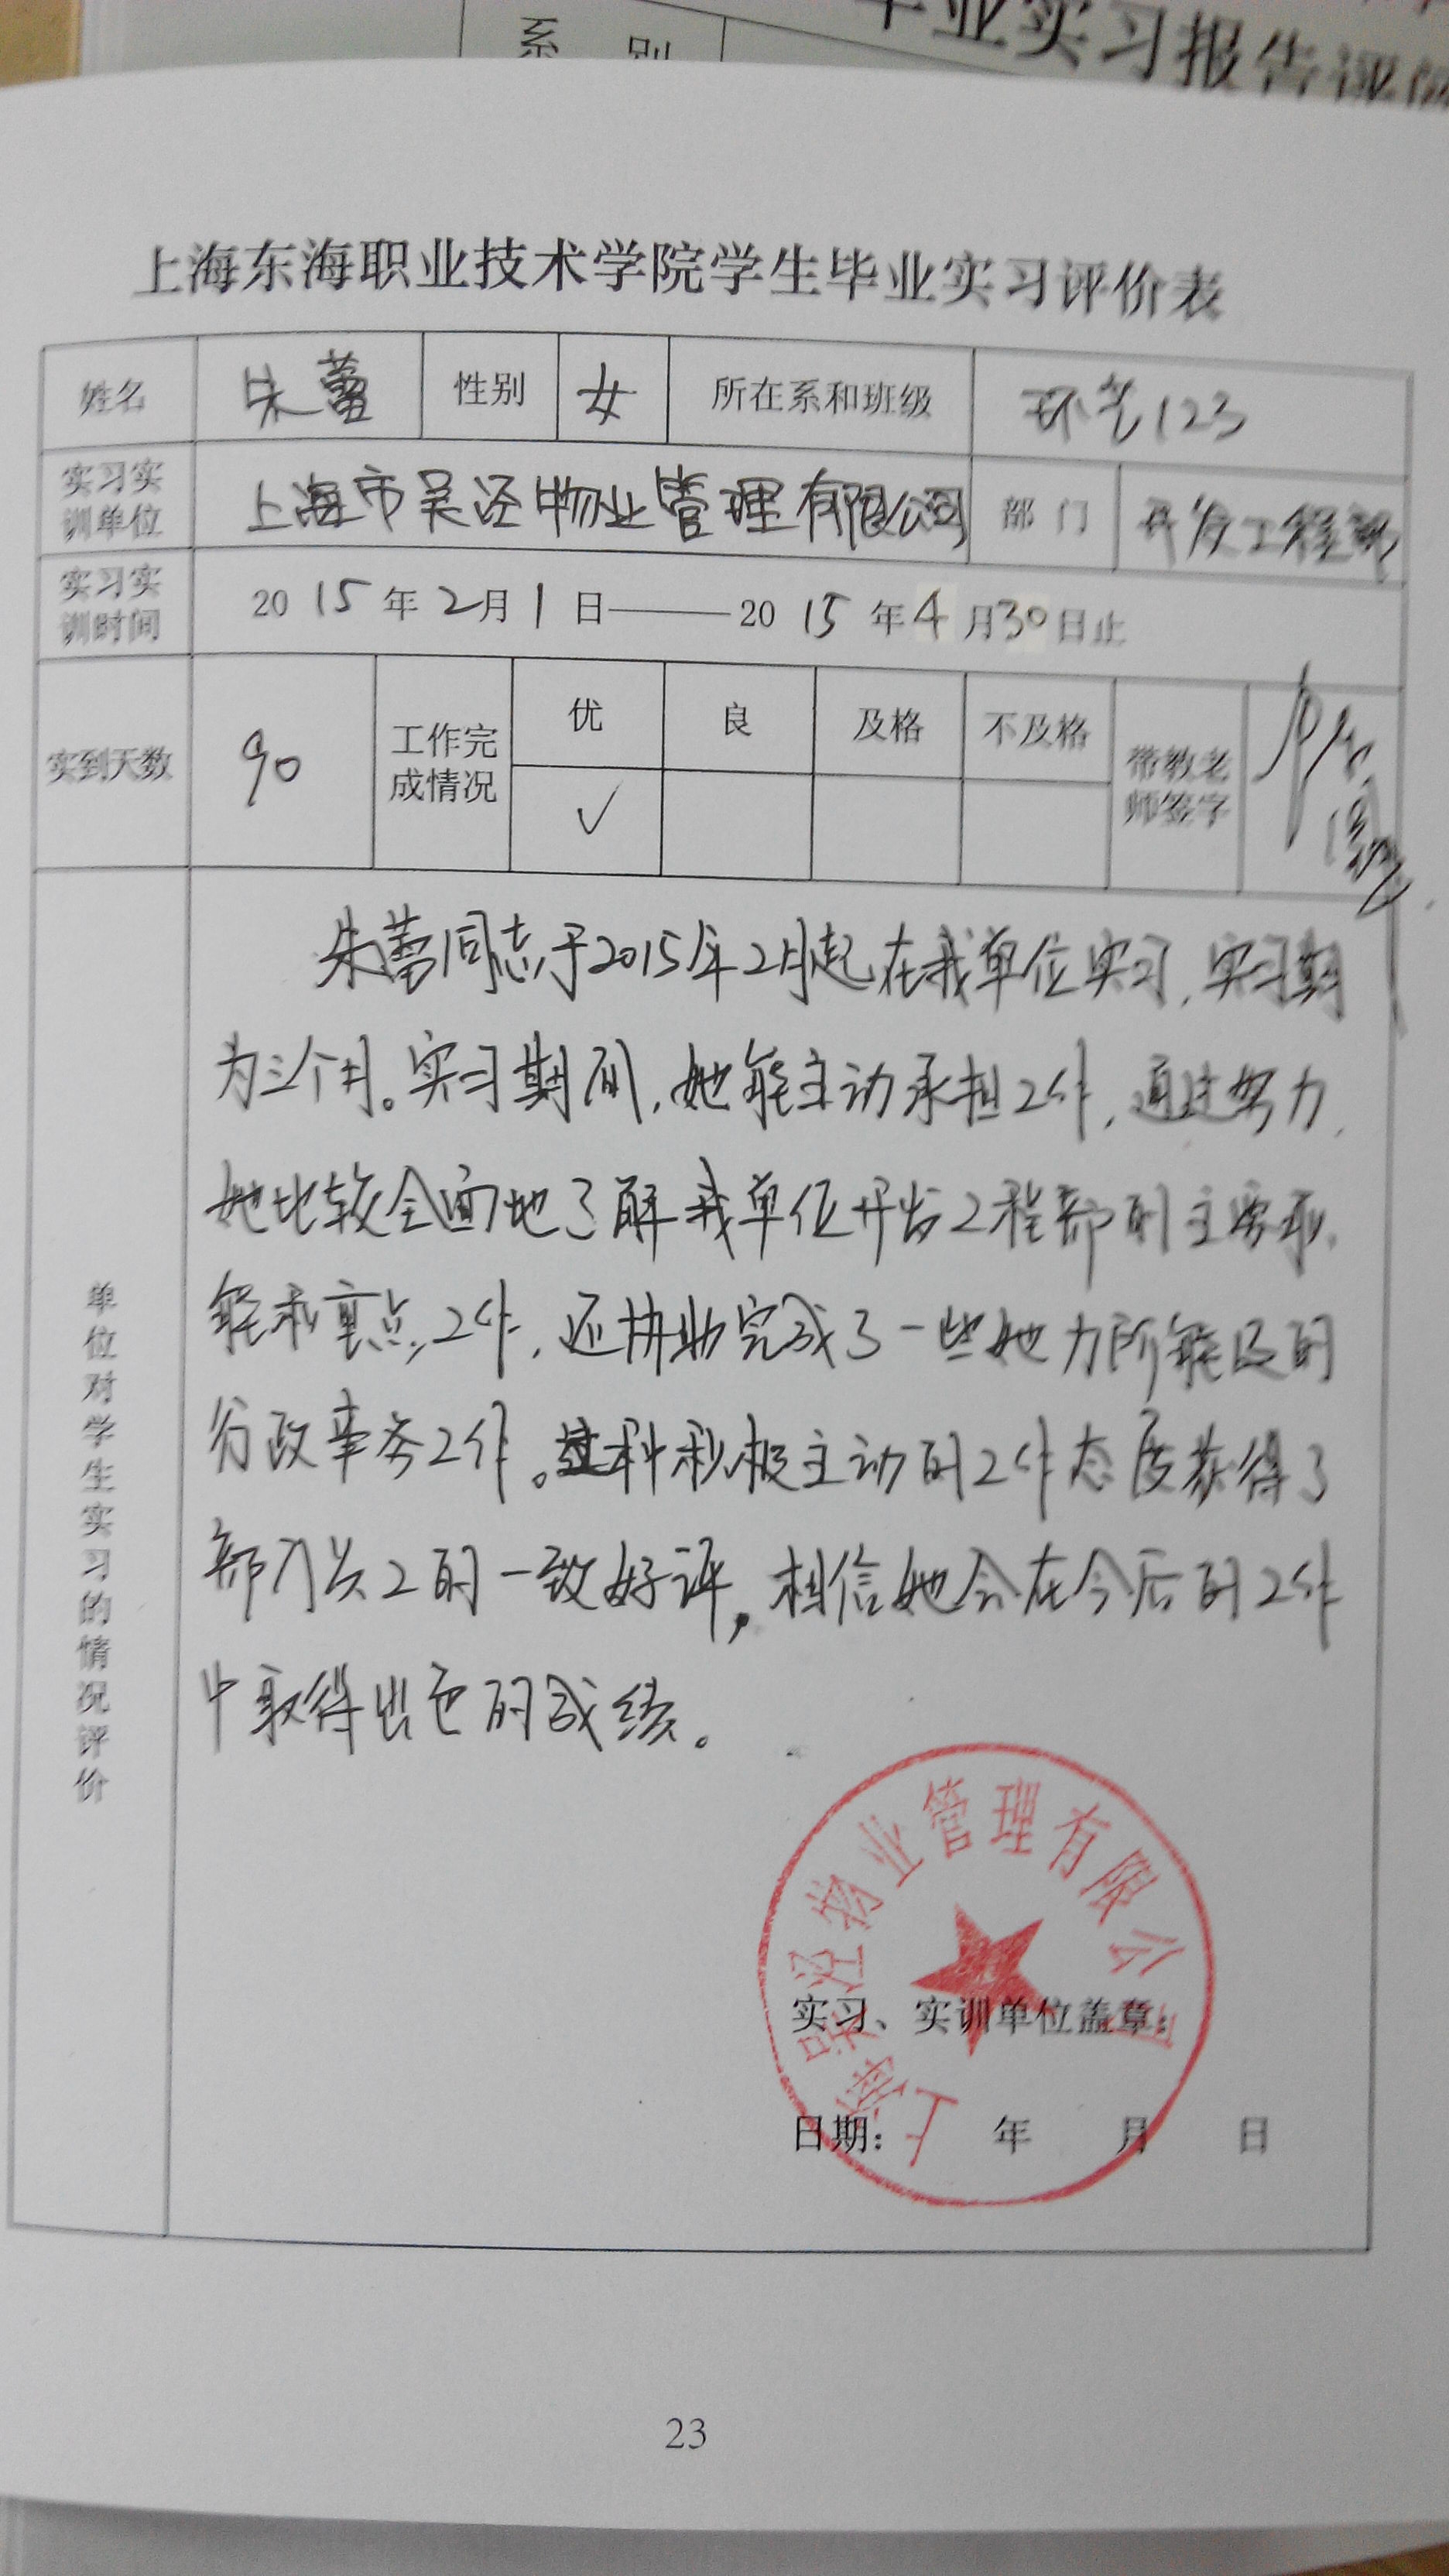 系 别
毕业实习报告评阅
上海东海职业技术学院学生毕业实习评价表
姓名 朱蕾 性别 女 所在系和班级 环艺123
实习实训单位 上海市吴泾物业管理有限公司 部门 开发工程部
实习实训时间 2015年2月1日——2015年4月30日止
实到天数 90 工作完成情况 优 良 及格 不及格 带教老师签字
√
单位对学生实习的情况评价
朱蕾同志于2015年2月起在我单位实习,实习期
为三个月。实习期间,她能主动承担工作,通过努力,
她比较全面地了解我单位开发工程部的主要职
能和重点工作,还协助完成了一些她力所能及的
行政事务工作。这种积极主动的工作态度获得了
部门员工的一致好评,相信她会在今后的工作
中取得出色的成绩。
上海吴泾物业管理有限公司
实习、实训单位盖章:
日期: 年 月 日
23